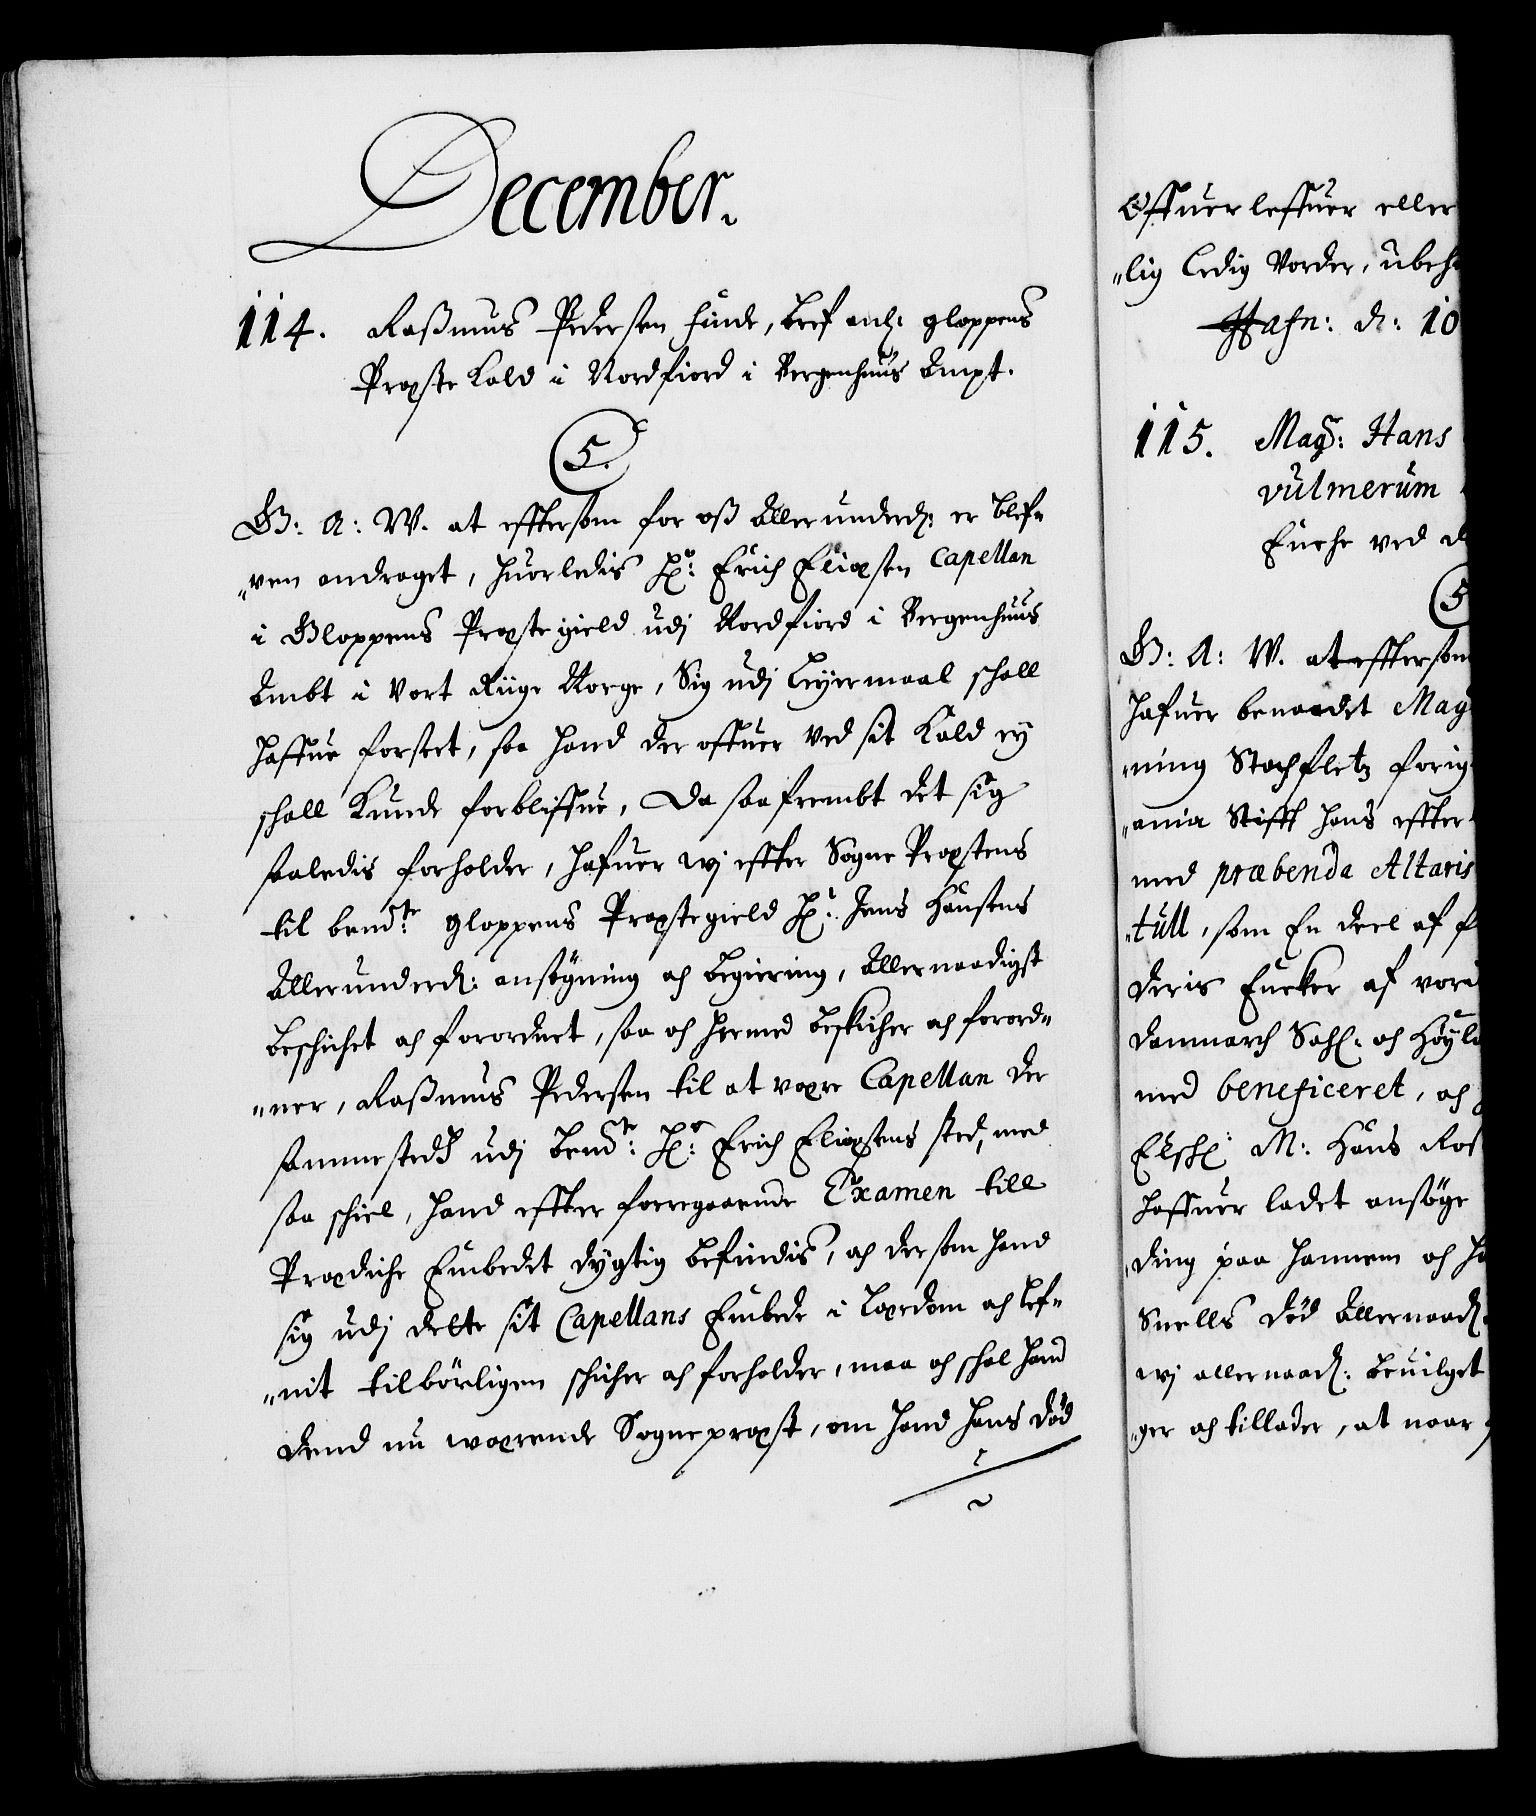 December.
114. Rasmus Pedersen Hinde, Bref anl: gloppens
Præste Kald i Nordfiord i Bergenhuus Ampt.
5.
G: A: W. at effterson for oß Allerunderd: er blef-
"ven andraget, huorledis Hr: Erich Eliæsen Capellan
i Gloppens Præstegield udj Nordfiord i Bergenhuus
Ambt i Vort Riige Norge, Sig udj Leyermaal schall
haffue forseet, saa hand der offuer Ved sit Kald ey
schall Kunde forbliffue, Da saafrembt det sig
saaledis forholder, hafuer wj effter Sogne Præstens
til bemdte: gloppens Præstegield Hr: Jens Hansens
Allerunderd: ansøgning och begiering, Allernaadigst
beschichet och forordnet, saa och hermed beskicher och forord-
"ner, Rasmus Pedersen til at være Capellan der
sammesteds udj bemdte: Hr: Erich Eliæsens sted, med
saa schiel, hand effter foregaaende Examen till
Prædiche Embedet dygtig befindis, och dersom hand
sig udj dette sit Capellans Embede i Lærdom och Lef-
"nit tilbørligen schicher och forholder, maa och schal hand
dend nu wærende Sognepræst, om hand hans død
Offuerleffuer eller
"lig Ledig Vorder, ubeh
Hafn: d: 10
115. Mag: Hans
vulmerum
Euche ved d
5
G: A: W. at effterson
hafuer benaadet Mag
"ning Stochfletz forig
"ania Stifft hans effter
med præbenda Altaris
"tull, som En deel af f
deris Encker af vore
Danmarch Sahl: och Høyl
med beneficeret, och
Elschl: M: Hans Ros
haffuer ladet ansøge
"ding paa hannem och h
Snells død Allernaad:
wj allernaad: beuilget
"ger och tillader, at naar